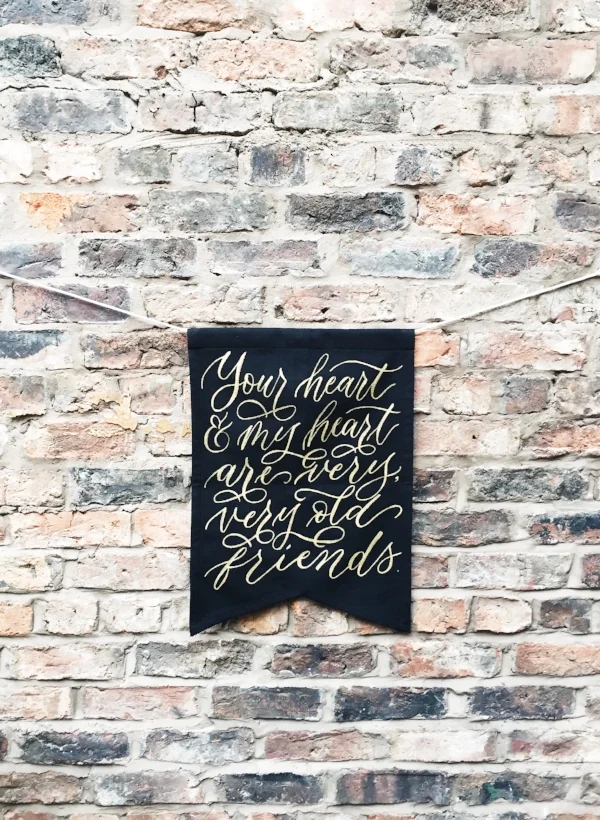 Your heart
& my heart
are very,
very old
friends.